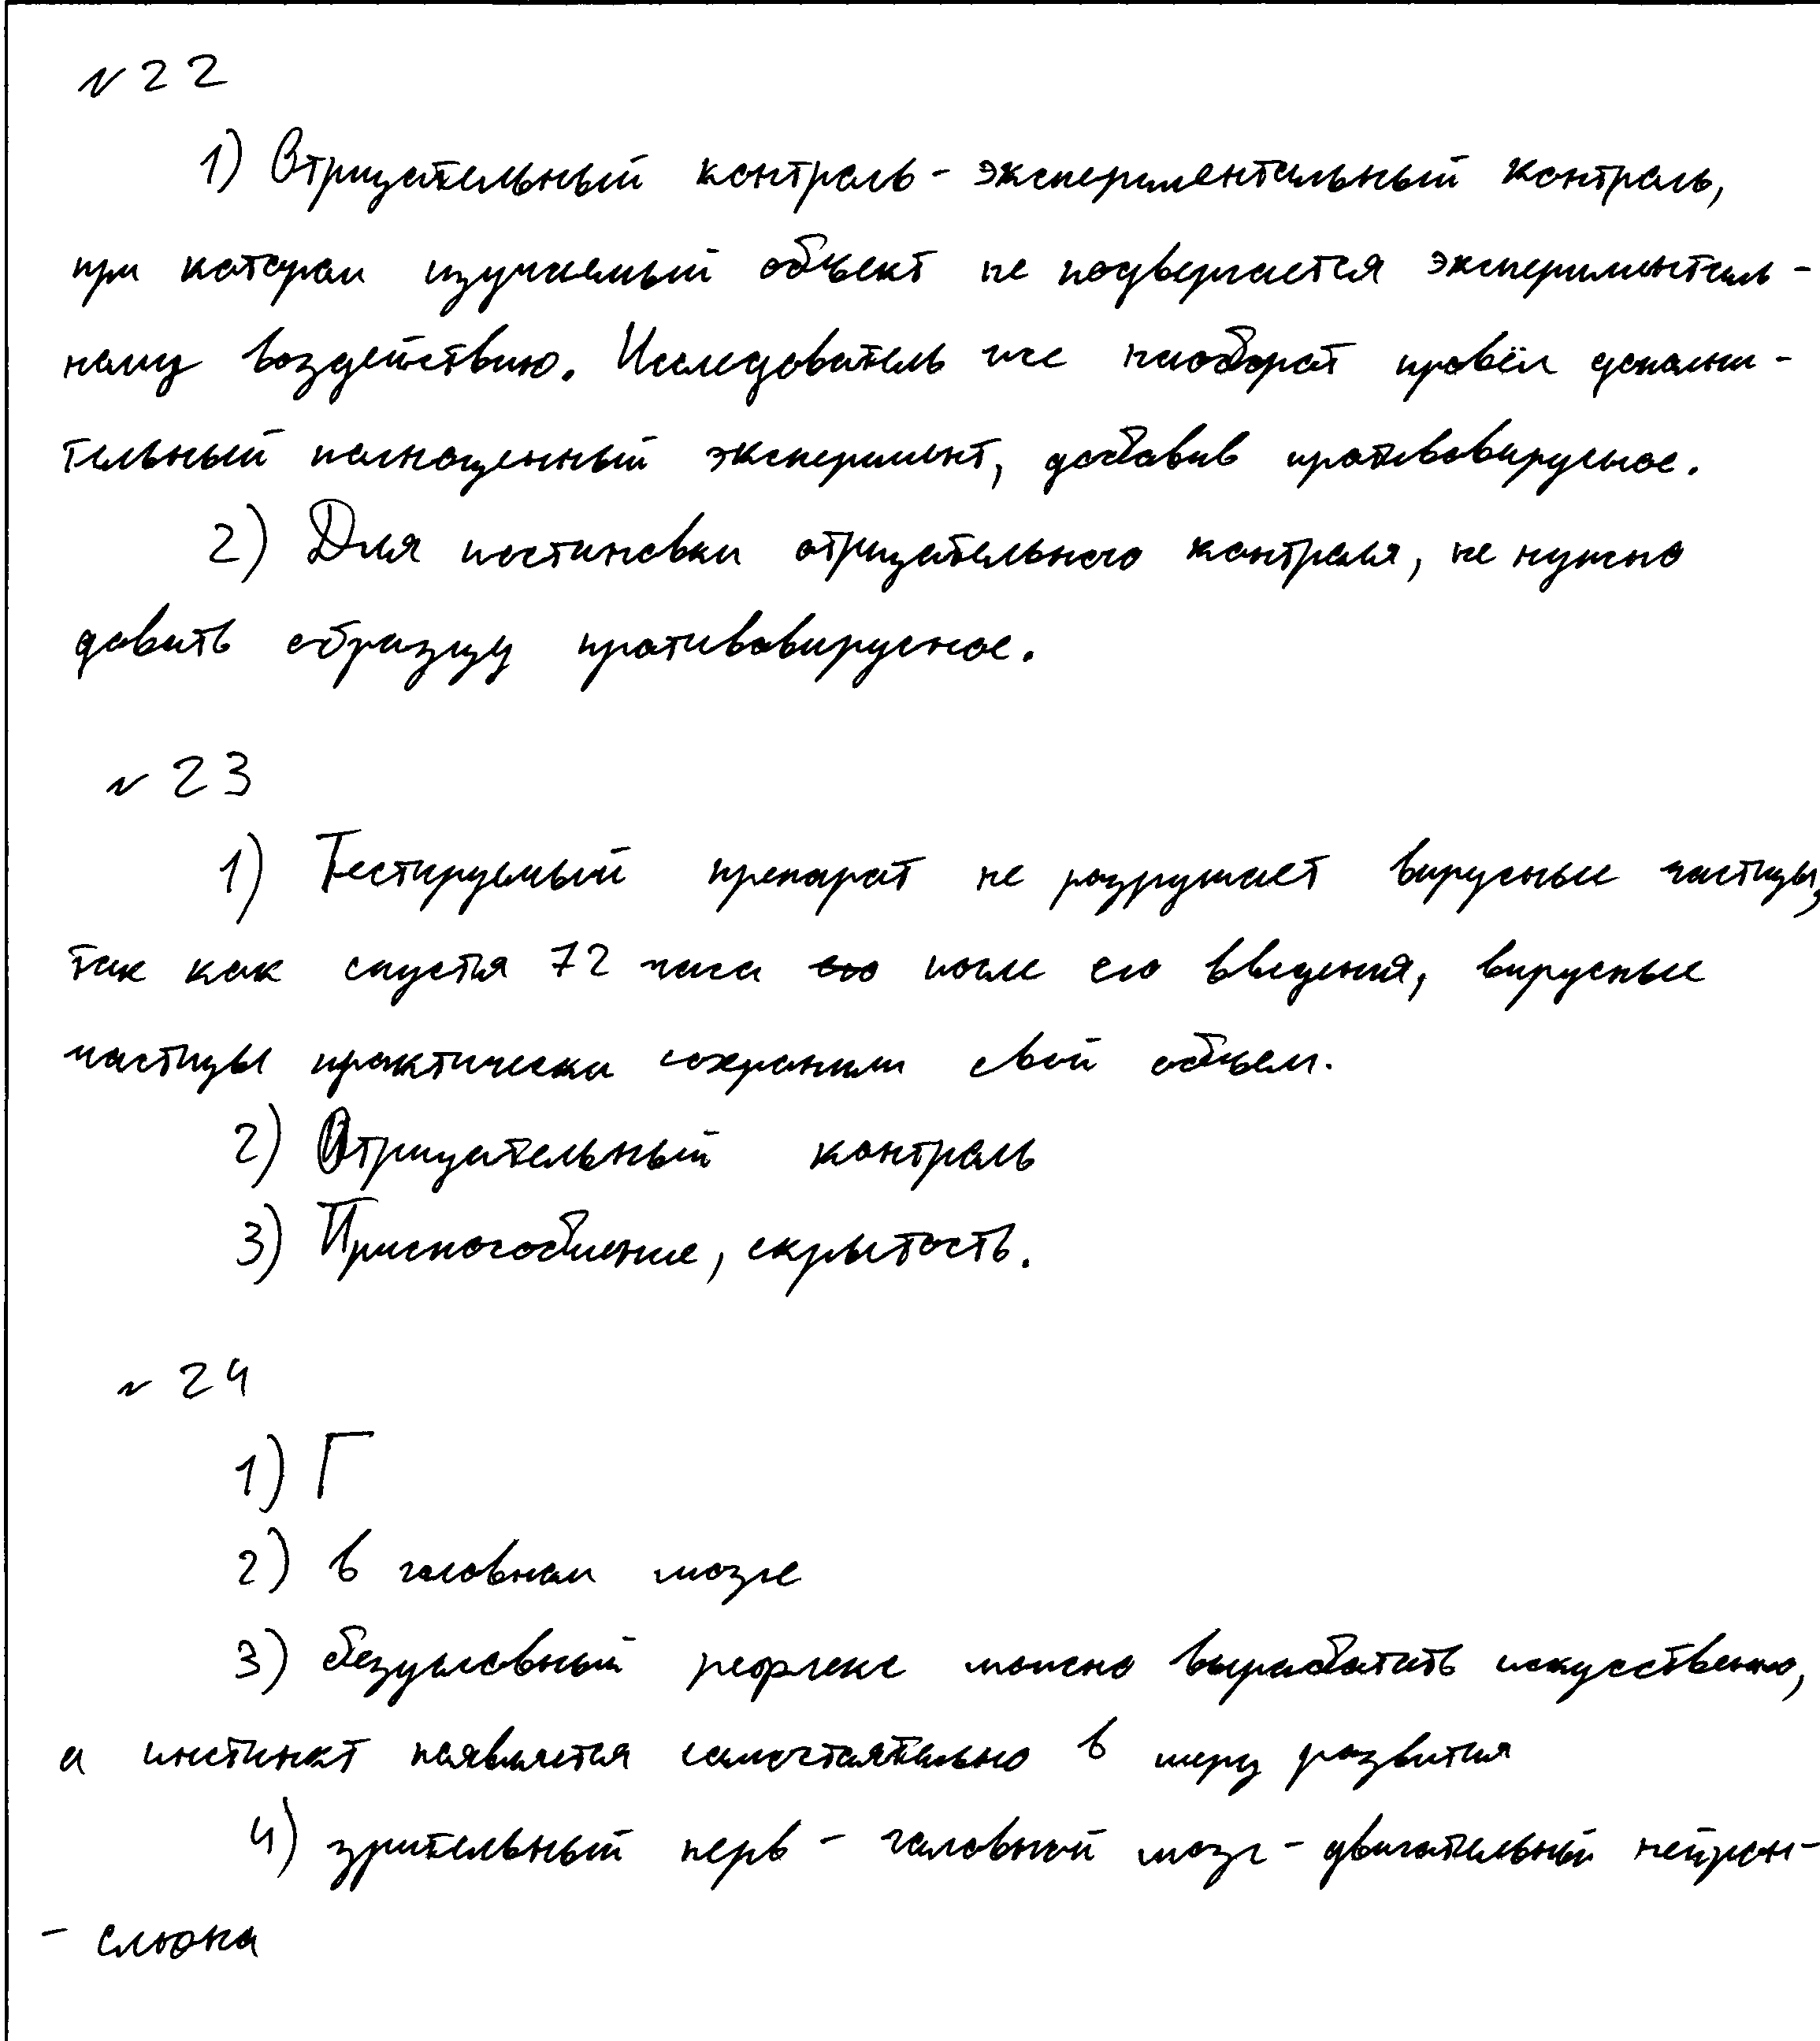 №22
1) Отрицательный контроль - экспериментальный контроль,
при котором изучаемый объект не подвергается эксперименталь-
ному воздействию. Исследователь же наоборот провёл дополни-
тельный полноценный эксперимент, добавив противовирусное.
2) Для постановки отрицательного контроля, не нужно
давать образцу противовирусное.
№23
1) Тестируемый препарат не разрушает вирусные частицы,
так как спустя 72 часа после его введения, вирусные
частицы практически сохранили свой объем.
2) Отрицательный контроль
3) Приспособление, скрытость.
№24
1) Г
2) в головном мозге
3) безусловный рефлекс можно выработать искусственно,
а инстинкт появляется самостоятельно в меру развития
4) зрительный нерв - головной мозг - двигательный нейрон -
- слюна